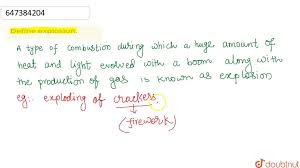 647384204
Define explosion.
A type of combustion during which a huge amount of
heat and light evolved with a boom along with
the production of gas is known as explosion
eg:. exploding of crackers.
(firework)
doubtnut